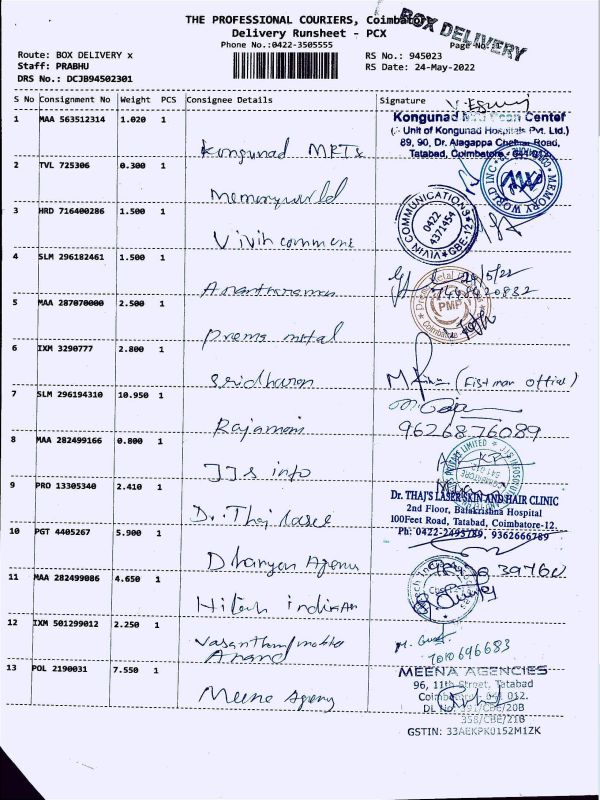 THE PROFESSIONAL COURIERS, Coimbatore
BOX DELIVERY
Delivery Runsheet - PCX
Phone No.:0422-3505555
Page No.:1
Route: BOX DELIVERY x
RS No.: 945023
Staff: PRABHU
RS Date: 24-May-2022
DRS No.: DCJB94502301
S No Consignment No Weight PCS Consignee Details Signature
1 MAA 563512314 1.020 1
Kongunad
Kongunad Center
(A Unit of Kongunad Hospitals Pvt. Ltd.)
89, 90, Dr. Alagappa Chettiar Road,
Tatabad, Coimbatore
2 TVL 725306 0.300 1
Memoryworld
MEMORY WORLD INC
3 HRD 716400286 1.500 1
Vivih comment
VIVIH COMMUNICATIONS
0422
4371454
CBE-12
4 SLM 296182461 1.500 1
24/5/22
5 MAA 287070000 2.500 1
Prems metal
PMP
Coimbatore
6 IXM 3290777 2.800 1
Sridharan
7 SLM 296194310 10.950 1
Rajamani
9626876089
8 MAA 282499166 0.800 1
JJs info
9 PRO 13305340 2.410 1
Dr. Thaj laser
Dr. THAJ'S LASER SKIN AND HAIR CLINIC
2nd Floor, Balakrishna Hospital
100Feet Road, Tatabad, Coimbatore-12.
Ph: 0422-2493789, 9362666789
10 PGT 4405267 5.900 1
11 MAA 282499086 4.650 1
Hitech
12 IXM 501299012 2.250 1
Anand
7010696683
13 POL 2190031 7.550 1
Meena Agency
MEENA AGENCIES
96, 11th Street, Tatabad
Coimbatore - 641 012.
358/CBE/21B
GSTIN: 33AEKPK0152M1ZK